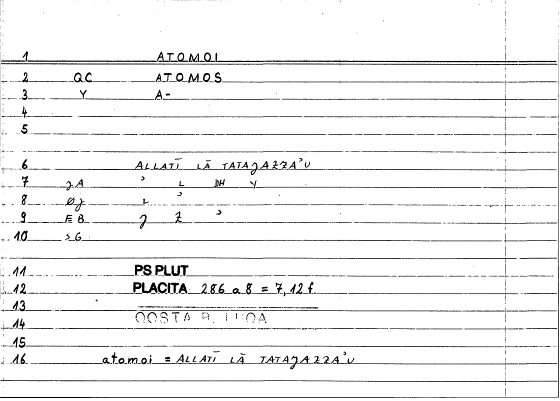 1 ATOMOI
2 QC ATOMOS
3 Y A-
4
5
6 ALLATĪ LĀ TATAGAZZA'U
7 gA ' L DH Y
8 Øg L '
9 EB g Z '
10 SG
11 PS PLUT
12 PLACITA 286 a 8 = 7,12 f.
13
14
15
16 atomoi = ALLATĪ LĀ TATAGAZZA'U